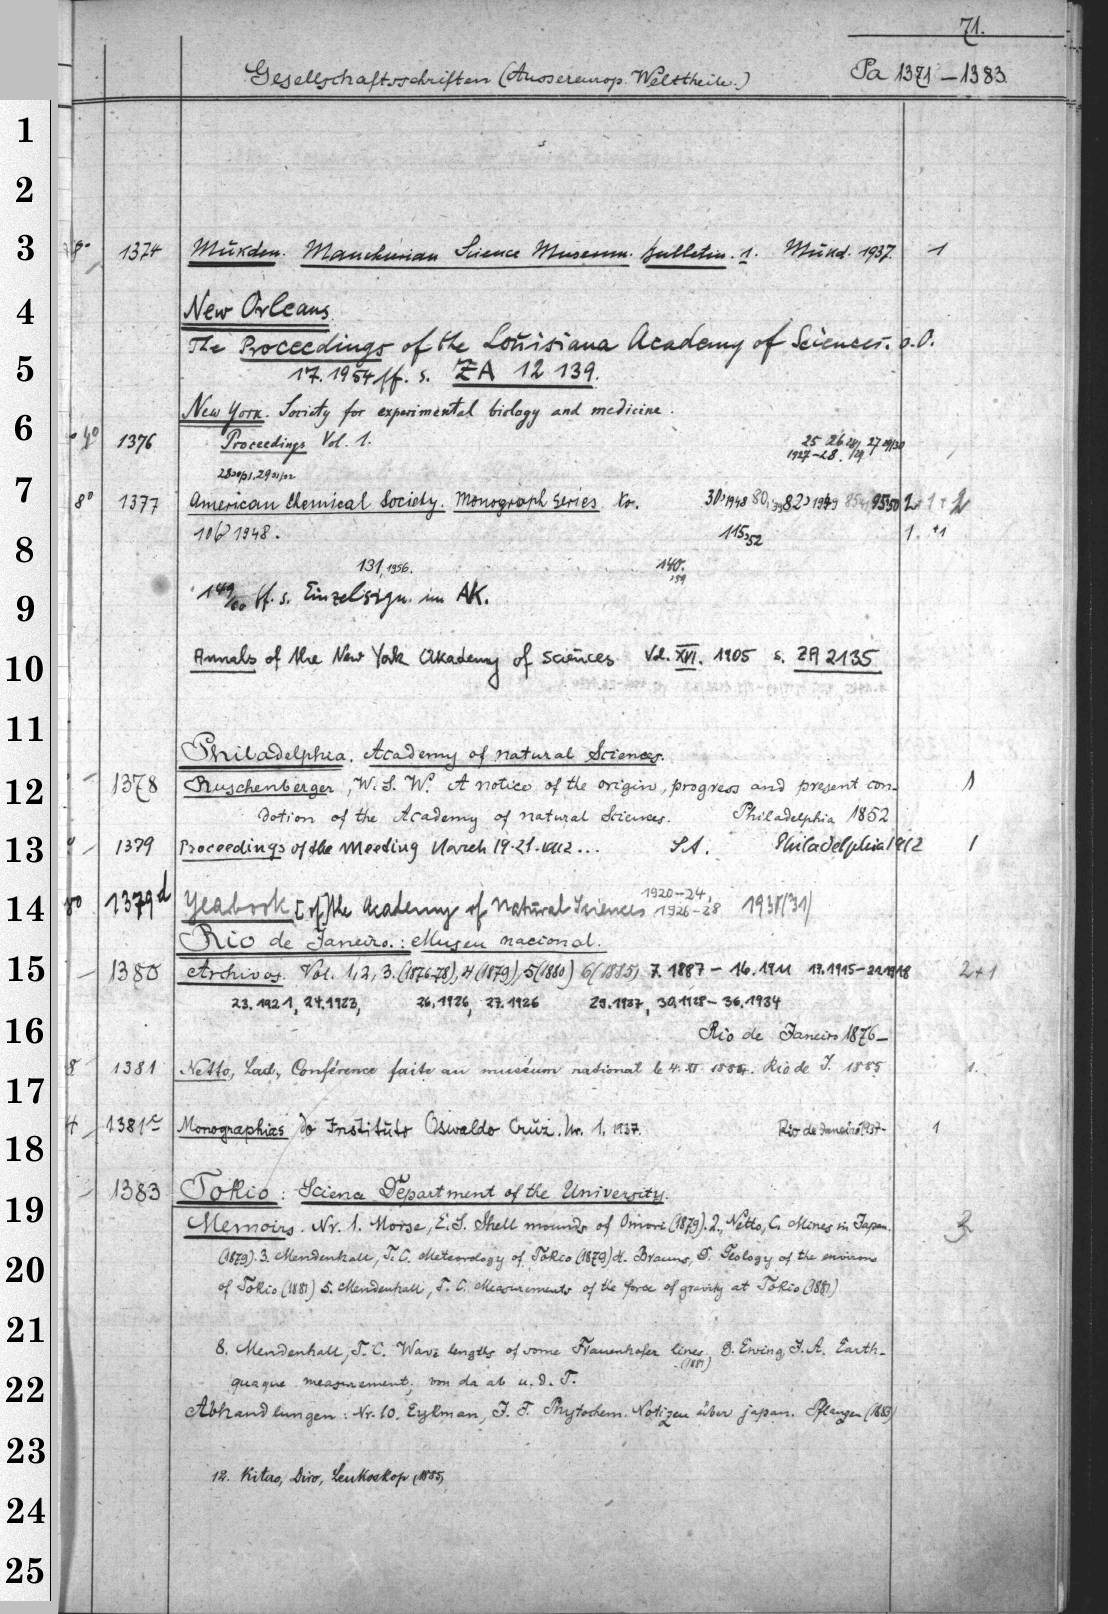 71.
Gesellschaftsschriften (Aussereurop. Welttheile.) Pa 1371-1383
1
2
3 8° 1374 Mukden. Manchurian Science Museum. Bulletin. 1. Mukd. 1937. 1
4 New Orleans
The Proceedings of the Louisiana Academy of Sciences. o.O.
5 17.1954 ff. s. ZA 12 139.
New York. Society for experimental biology and medicine.
6 1376 Proceedings Vol. 1. 25 26 28/29 27 29/30
1927-28.
28 30/31. 29 31/32
7 8° 1377 American Chemical Society. Monograph Series Nr. 30, 1948 80, 82, 1949 95 50 2 + 1 + 2
106 1948. 115, 52 1. +1
8
131, 1956. 140. 159
9 149/60 ff. s. Einzelsign. im AK.
10 Annals of the New York Akademy of sciences Vol. XVI. 1905 s. ZA 2135
11
Philadelphia. Academy of natural Sciences.
12 1378 Ruschenberger, W. S. W. A notice of the origin, progress and present con-
dotion of the Academy of natural Sciences. Philadelphia 1852 1
13 1379 Proceedings of the Meeting March 19-21. 1912... SA. Philadelphia 1912 1
14 8° 1379d Yearbook [of] the Academy of Natural Sciences 1920-24, 1926-28 1931(31)
Rio de Janeiro.: Museu nacional.
15 1380 Archivos. Vol. 1, 2, 3. (1876-78), 4 (1879), 5 (1880) 6 (1885) 7. 1887 - 16. 1911 17. 1915-21. 1918 2+1
23. 1921, 24. 1923, 26. 1926, 27. 1926 29. 1927, 30. 1928 - 36. 1934
16 Rio de Janeiro 1876-
17 8 1381 Netto, Lad., Conférence faite au muséum national le 4. XI 1884. Rio de J. 1885 1.
18 4 1381c Monographias do Instituto Oswaldo Cruz. Nr. 1. 1937. Rio de Janeiro 1937- 1
19 1383 Tokio: Science Department of the University.
Memoirs. Nr. 1. Morse, E. S. Shell mounds of Omori (1879). 2. Netto, C. Mines in Japan. 3
20 (1879). 3. Mendenhall, T. C. Meteorology of Tokio (1879) 4. Brauns, D. Geology of the environ
of Tokio (1881) 5. Mendenhall, T. C. Measurements of the force of gravity at Tokio (1881)
21
8. Mendenhall, T. C. Wave lengths of some Frauenhofer lines. (1881) 9. Ewing, J. A. Earth-
22 quaque measurement, von da ab u. d. T.
Abhandlungen: Nr. 10. Eykman, J. F. Phytochem. Notizen über japan. Pflanzen (1883)
23
12. Kitao, Diro, Leukoskop (1885)
24
25